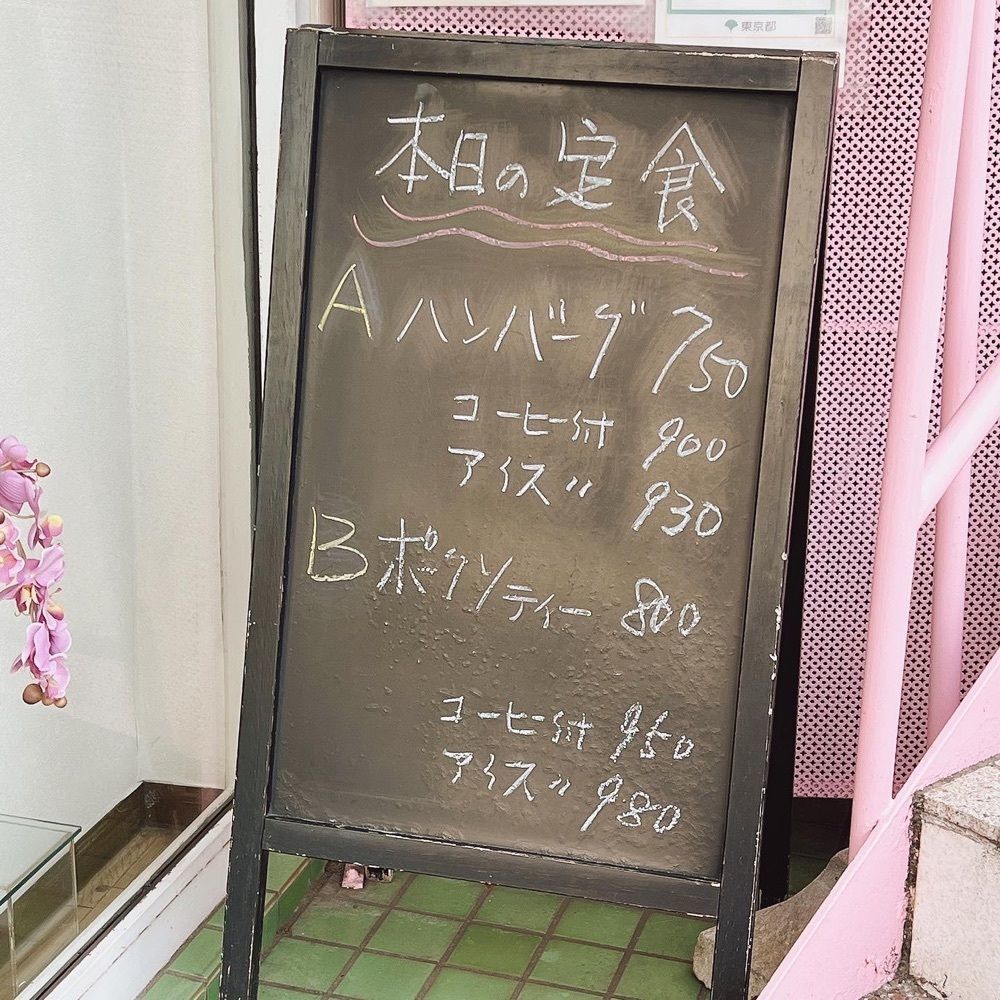 東京都
本日の定食
A ハンバーグ 750
コーヒー付 900
アイス〃 930
B ポークソティー 800
コーヒー付 950
アイス〃 980